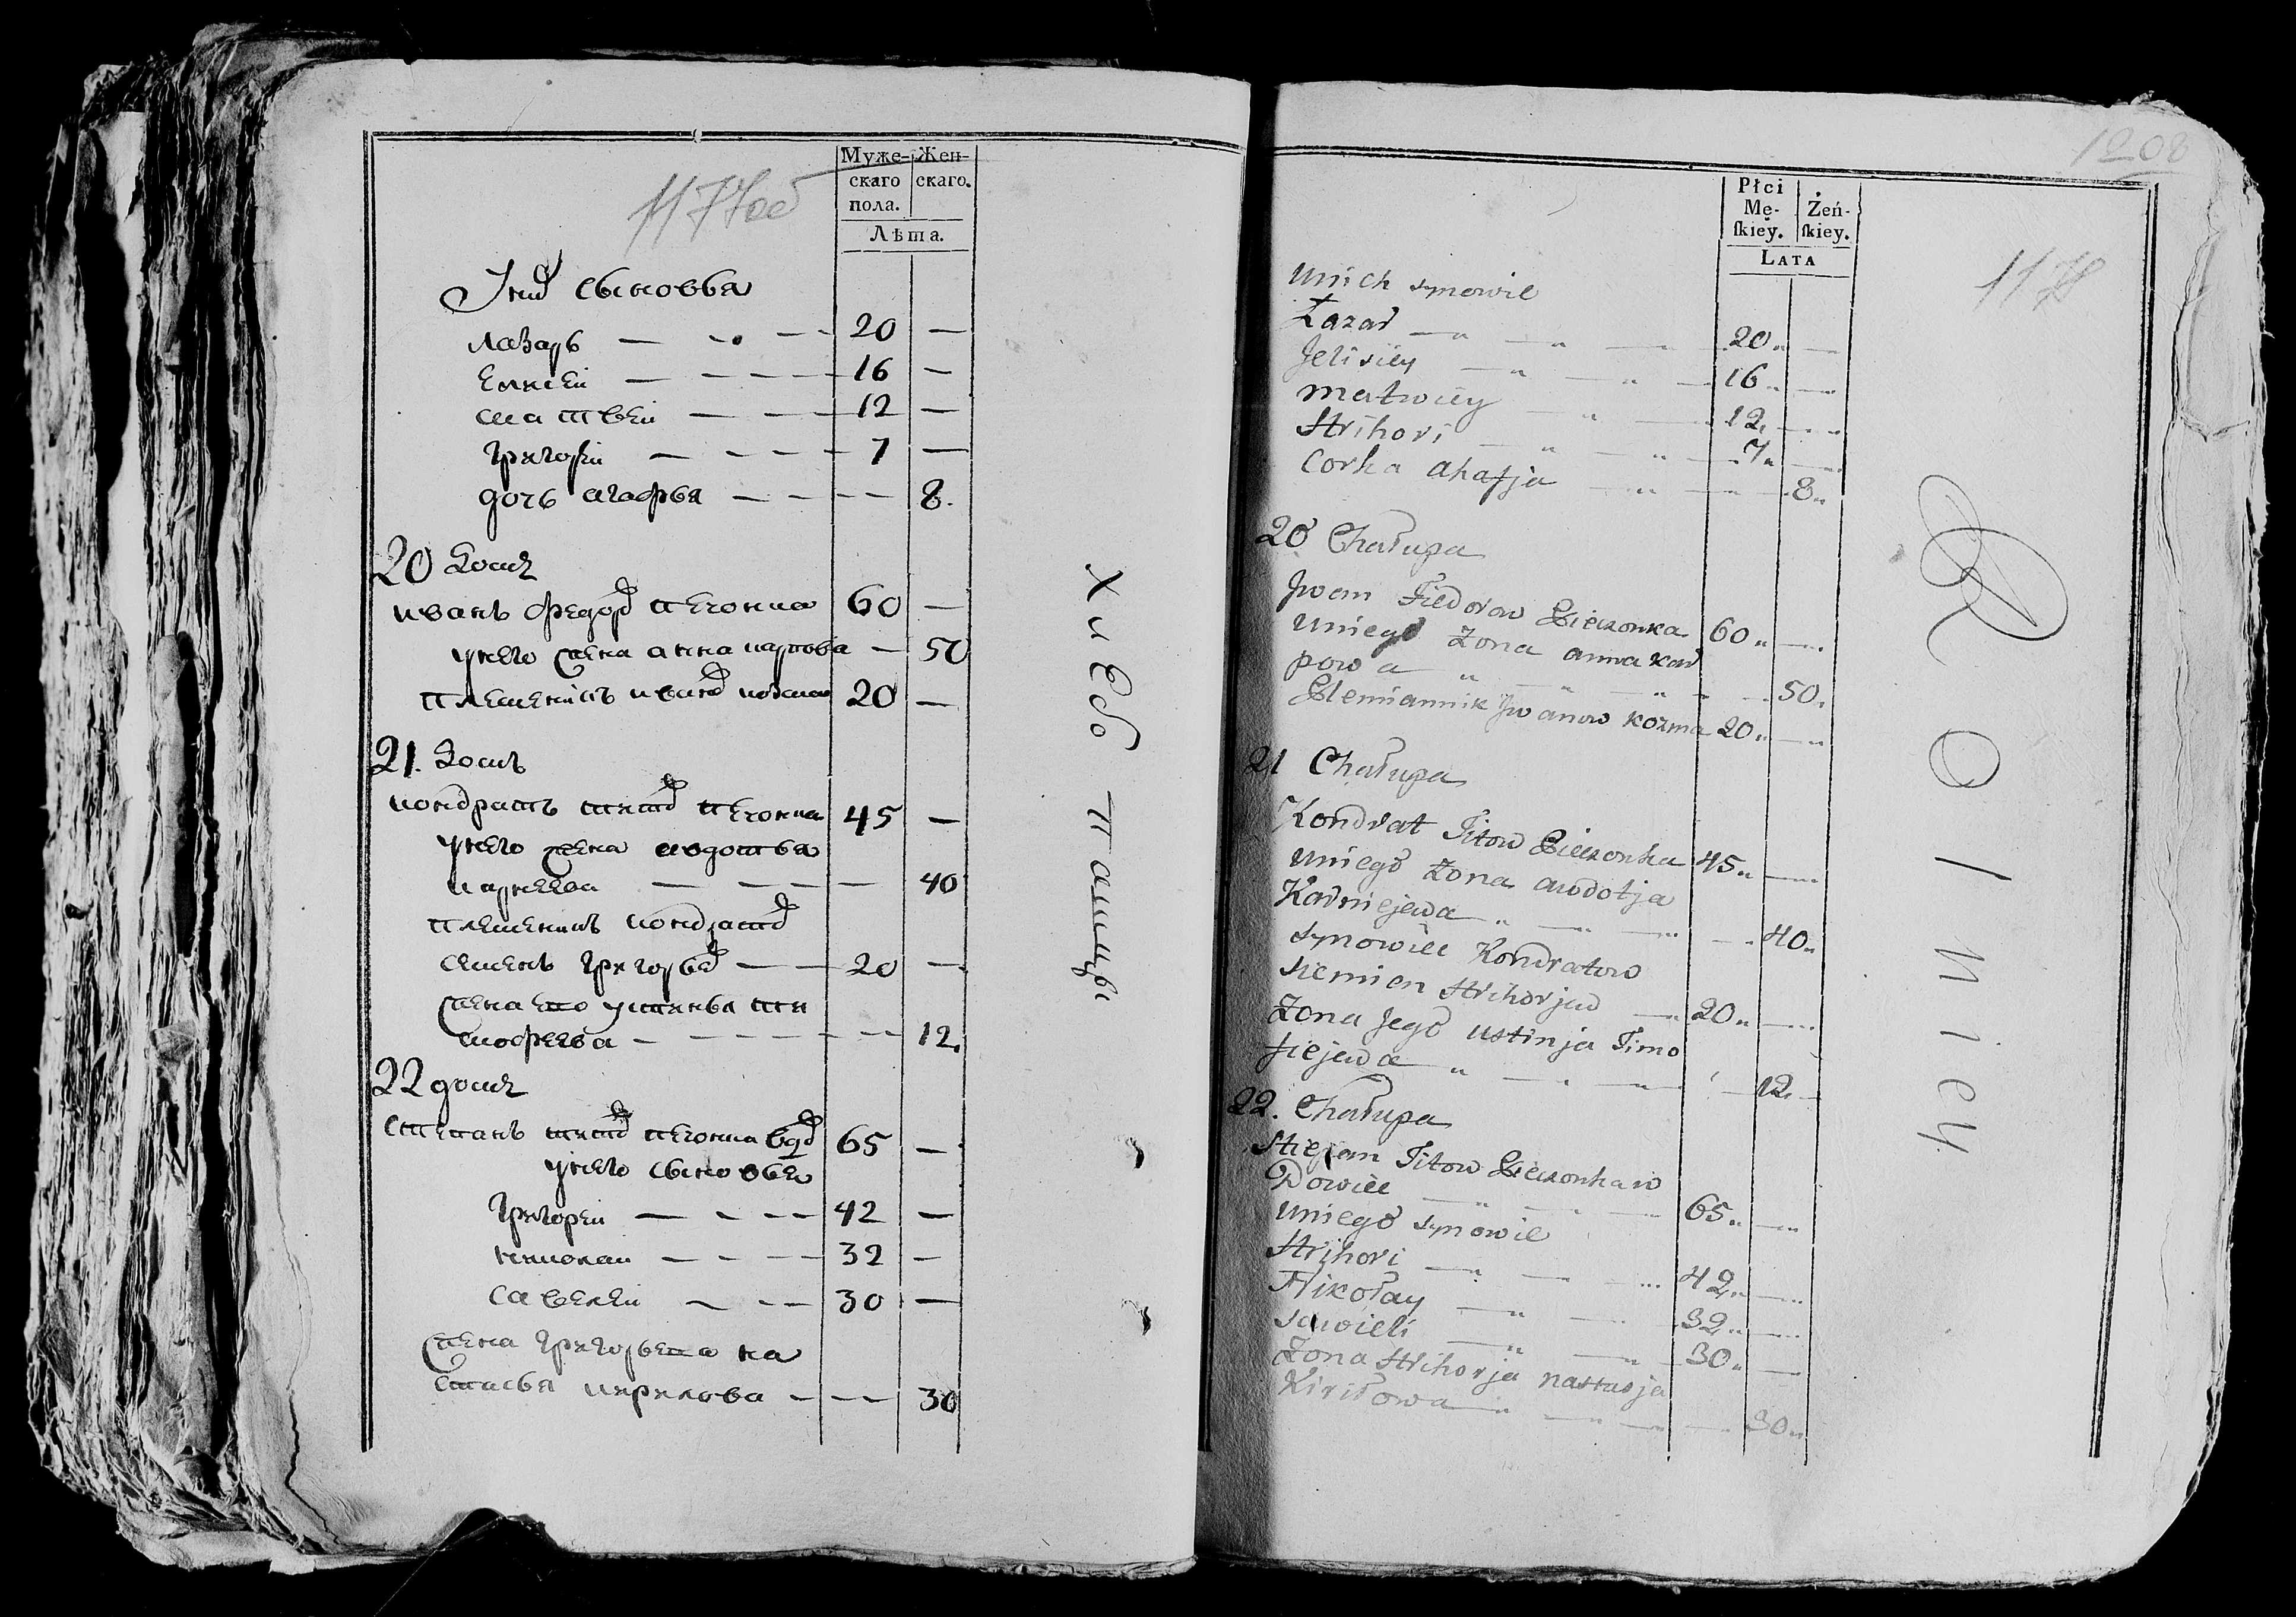 1177об
Муже- Жен-
скаго скаго.
пола.
Лѣта.
У них сыновья
Лазарь — — — 20 —
Елисей — — — — 16 —
Матвей — — — 12 —
Григорей — — — — 7 —
дочь Агафья — — — — 8.
20 Домъ
Иванъ Федоров Печонка 60 —
у него жена Анна Карпова — 50
племеникъ Иванов Козма 20 —
21. Домъ
Кондратъ Титов Печонка 45 —
у него жена Авдотья
Карнеева — — — — 40
племеникъ Кондратов
Семенъ Григорьев — — 20 —
жена ево Устинья Ти
мофеева — — — — — — 12.
22 домъ
Степанъ Титов Печонка вдов 65 —
у него сыновья
Григорей — — — — 42 —
Николай — — — — 32 —
Савелей — — — 30 —
жена Григорьева На
стасья Кирилова — — — 30
Хлебо пашцы
1208
1178
Płci
Mę- Żeń-
ſkiey. ſkiey.
Lata
Unich synowie
Łazar — — — 20 „ —
Jelisiey — „ — „ — 16 „ —
Matwiey — „ — 12„ — „
Hrihori — „ — „ — 7 „ —
Corka Ahafja — „ — — 8 „
20 Chałupa
Jwan Fiedorow Pieczonka 60 „ —
Uniego Żona Anna Kar
powa „ — „ — „ — — 50.
Plemiannik Jwanow Kozma 20 „ — „
21 Chałupa
Kondrat Titow Pieczonka 45 „ —
Uniego Żona Awdotja
Karniejewa — „ — — — 40 „
synowiec Kondratow
Siemien Hrihorjew — 20 „ —
Żona Jego Ustinja Timo
fiejewa — „ — — — — 12. —
22. Chałupa
Stiepan Titow Pieczonka w
Dowiec — „ — — — 65 „ —
Uniego synowie
Hrihori — „ — — 42 „ —
Nikołay — „ — — 32 „ —
Sawieli — „ — — 30 „ —
Żona Hrihorja Nastasja
Kiriłowa — „ — „ — — 30 „
R o l n i c y